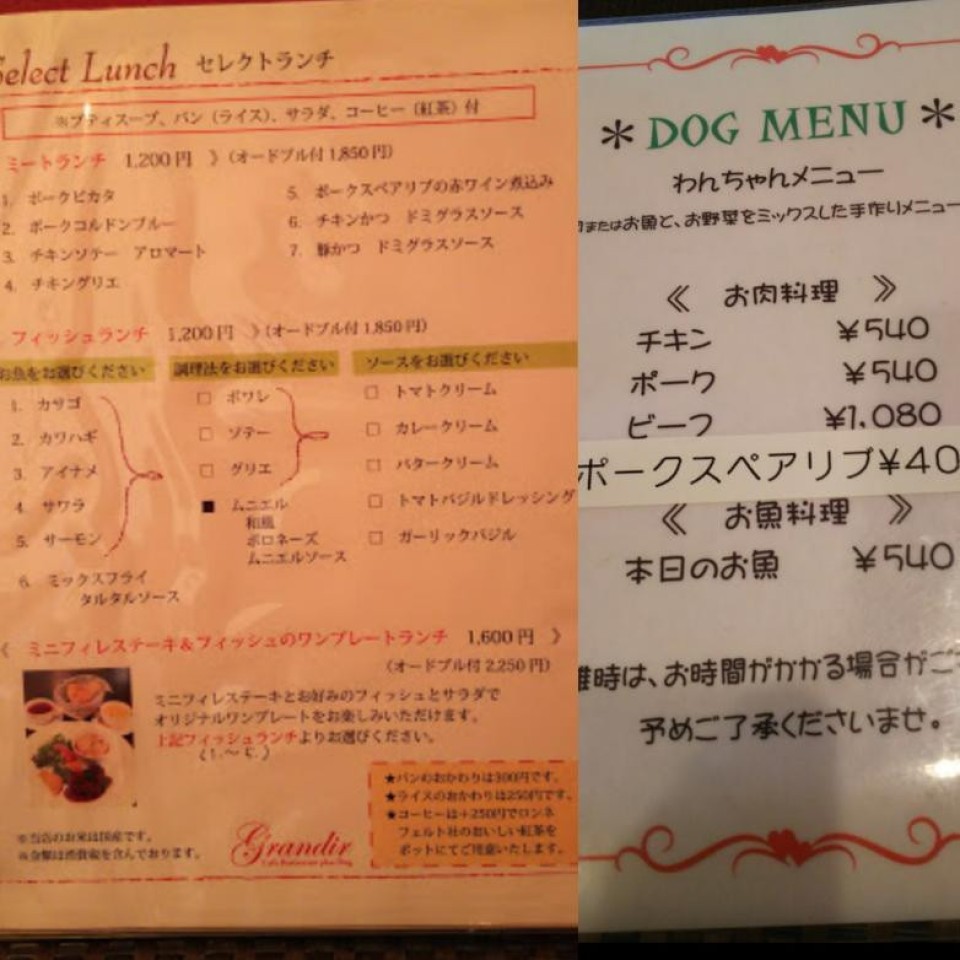 Select Lunch セレクトランチ
※プティスープ、パン（ライス）、サラダ、コーヒー（紅茶）付
ミートランチ 1,200円 》（オードブル付 1,850円）
1. ポークピカタ
2. ポークコルドンブルー
3. チキンソテー アロマート
4. チキングリエ
5. ポークスペアリブの赤ワイン煮込み
6. チキンかつ ドミグラスソース
7. 豚かつ ドミグラスソース
フィッシュランチ 1,200円 》（オードブル付 1,850円）
お魚をお選びください
1. カサゴ
2. カワハギ
3. アイナメ
4. サワラ
5. サーモン
6. ミックスフライ
タルタルソース
調理法をお選びください
□ ポワレ
□ ソテー
□ グリエ
■ ムニエル
和風
ポロネーズ
ムニエルソース
ソースをお選びください
□ トマトクリーム
□ カレークリーム
□ バタークリーム
□ トマトバジルドレッシング
□ ガーリックバジル
《 ミニフィレステーキ＆フィッシュのワンプレートランチ 1,600円 》
（オードブル付 2,250円）
ミニフィレステーキとお好みのフィッシュとサラダで
オリジナルワンプレートをお楽しみいただけます。
上記フィッシュランチよりお選びください。
(1.〜5.)
★パンのおかわりは300円です。
★ライスのおかわりは250円です。
★コーヒーは＋250円でロンネ
フェルト社のおいしい紅茶を
ポットにてご用意いたします。
※当店のお米は国産です。
※金額は消費税を含んでおります。
Grandir
＊DOG MENU＊
わんちゃんメニュー
またはお魚と、お野菜をミックスした手作りメニュー
《 お肉料理 》
チキン ￥540
ポーク ￥540
ビーフ ￥1,080
ポークスペアリブ¥40
《 お魚料理 》
本日のお魚 ￥540
雑時は、お時間がかかる場合がご
予めご了承くださいませ。